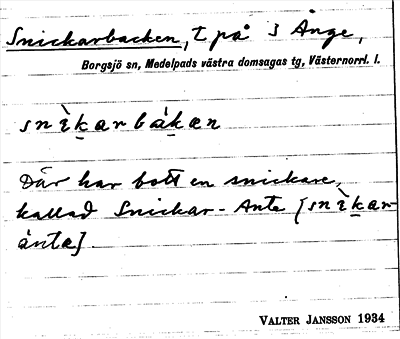 Snickarbacken, t på 3 Ånge,
Borgsjö sn, Medelpads västra domsagas tg, Västernorrl. l.
snìkarbákæn
Där har bott en snickare,
kallad Snickar-Ante [snìkar
ántæ].
VALTER JANSSON 1934